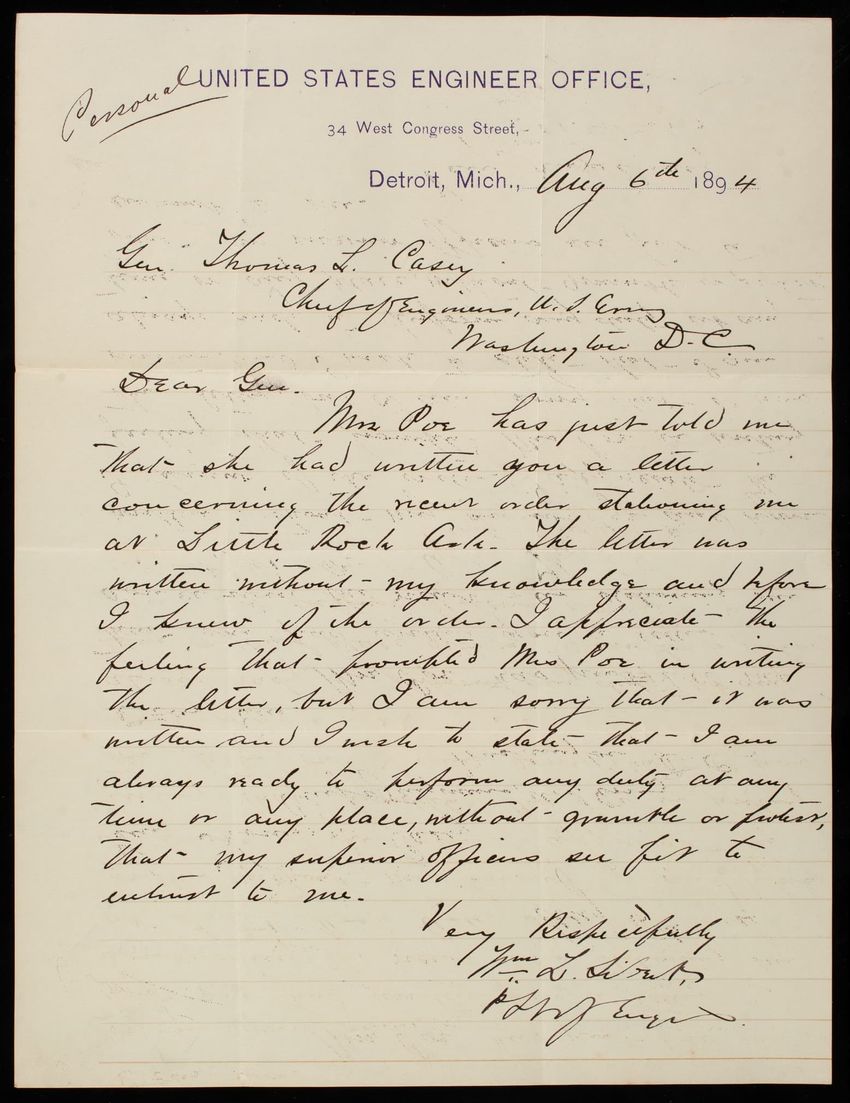 Personal
UNITED STATES ENGINEER OFFICE,
34 West Congress Street,
Detroit, Mich., Aug 6th 1894
Gen. Thomas L. Casey
Chief of Engineers, U.S. Army
Washington D.C.
Dear Gen.
Mrs Poe has just told me
that she had written you a letter
concerning the recent order stationing me
at Little Rock Ark. The letter was
written without my knowledge and before
I knew of the order. I appreciate the
feeling that prompted Mrs Poe in writing
the letter, but I am sorry that it was
written and I wish to state that I am
always ready to perform any duty at any
time or any place, without grumble or protest,
that my superior officers see fit to
entrust to me.
Very Respectfully
Wm L. Sibert,
1st Lt of Engrs